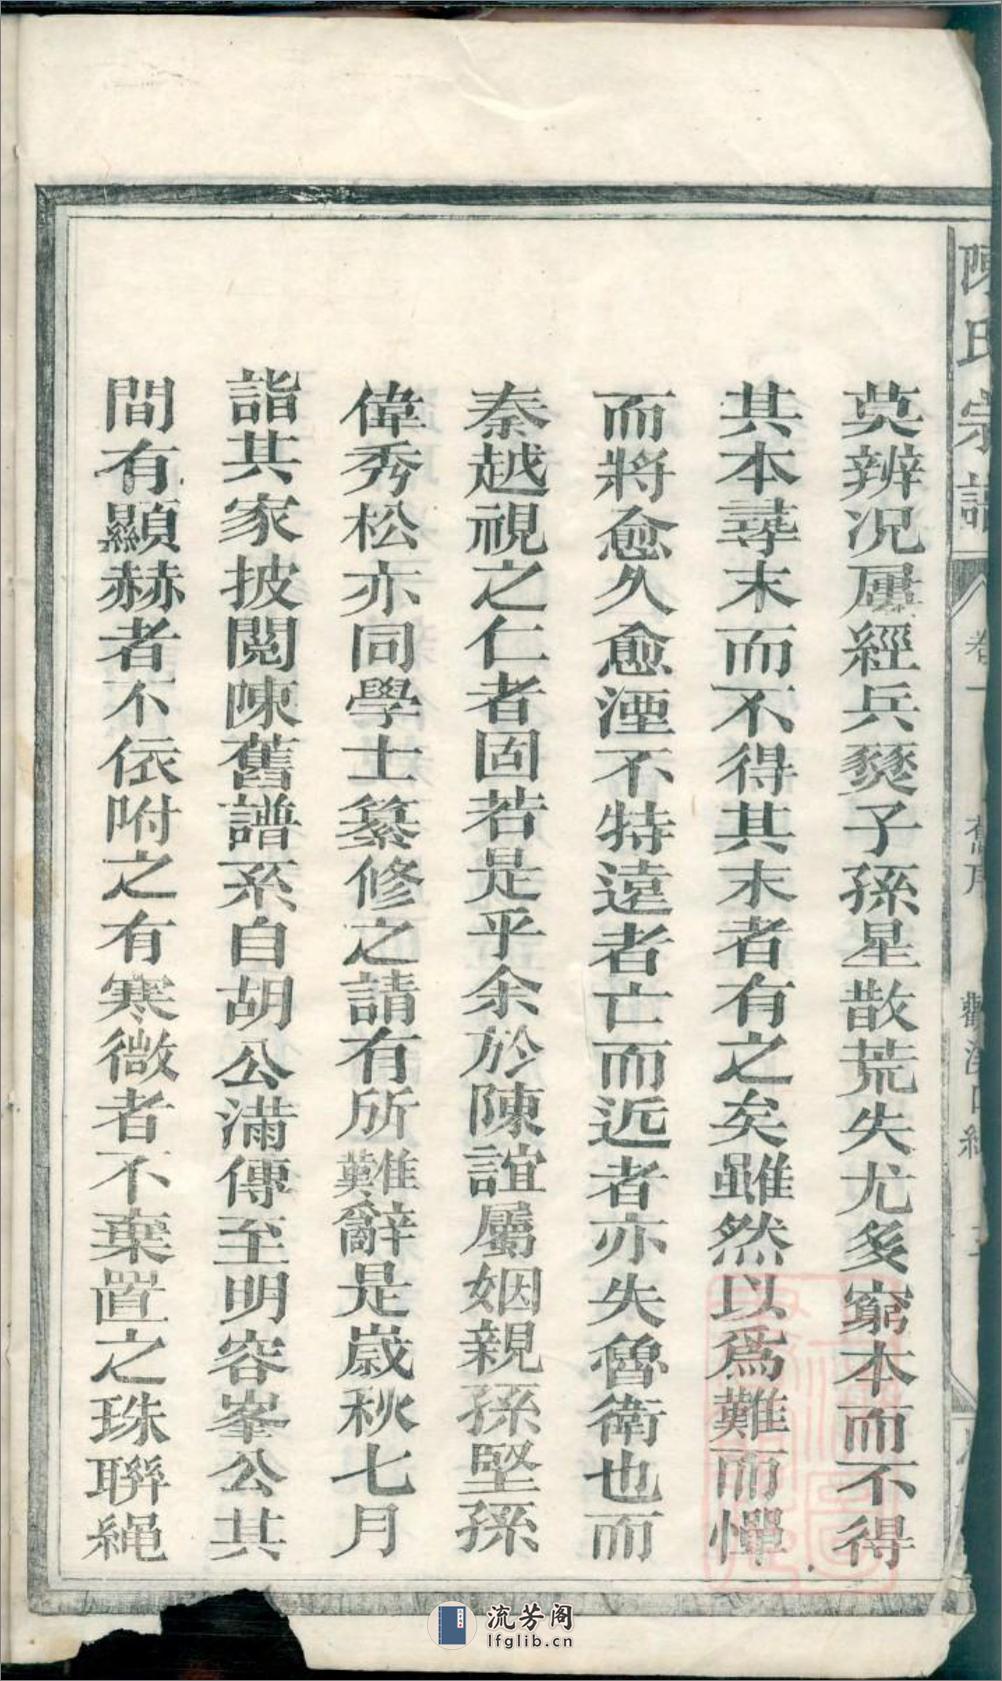 陳氏宗譜 卷一
莫辨况屢經兵燹子孫星散荒失尤多窮本而不得
其本尋末而不得其末者有之矣雖然以爲難而憚
而將愈久愈湮不特遠者亡而近者亦失魯衛也而
秦越視之仁者固若是乎余於陳誼屬姻親孫堅孫
偉秀松亦同學士纂修之請有所難辭是歲秋七月
詣其家披閱陳舊譜系自胡公滿傳至明容峯公其
間有顯赫者不依附之有寒微者不棄置之珠聯繩
流芳阁
lfglib.cn